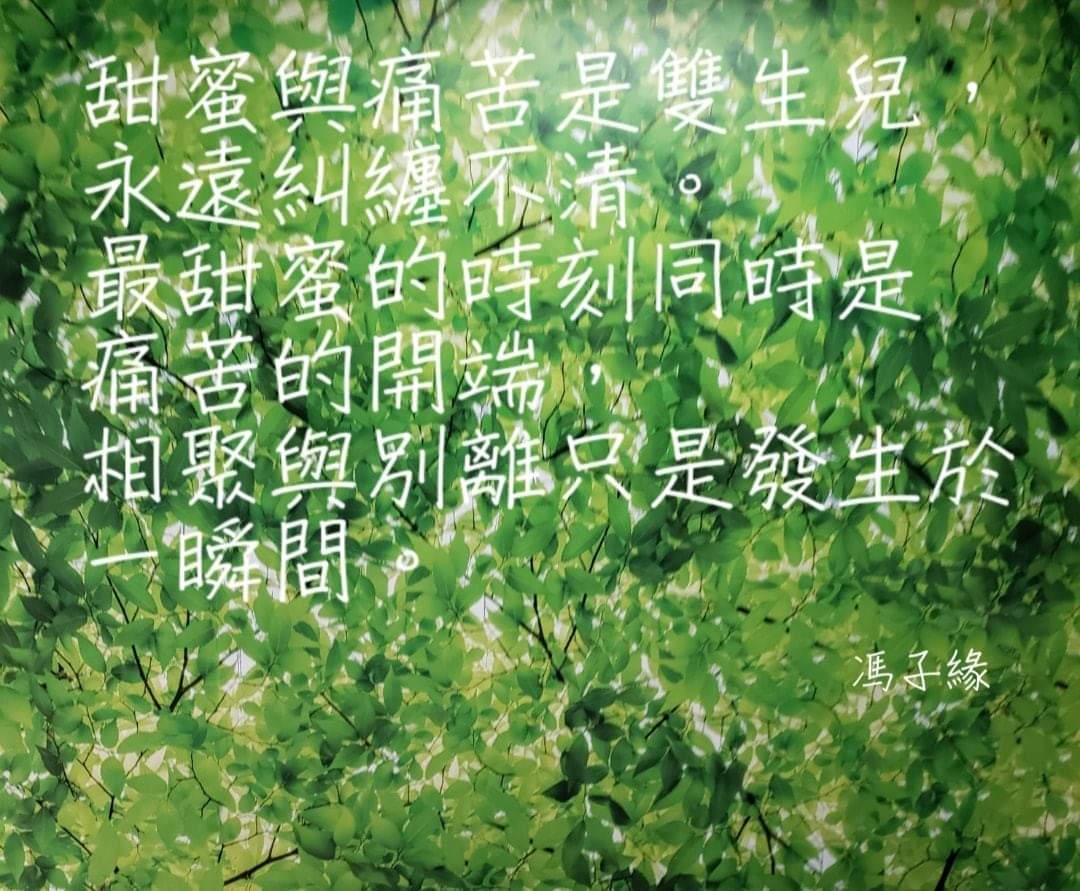 甜蜜與痛苦是雙生兒，
永遠糾纏不清。
最甜蜜的時刻同時是
痛苦的開端，
相聚與別離只是發生於
一瞬間。
馮子緣